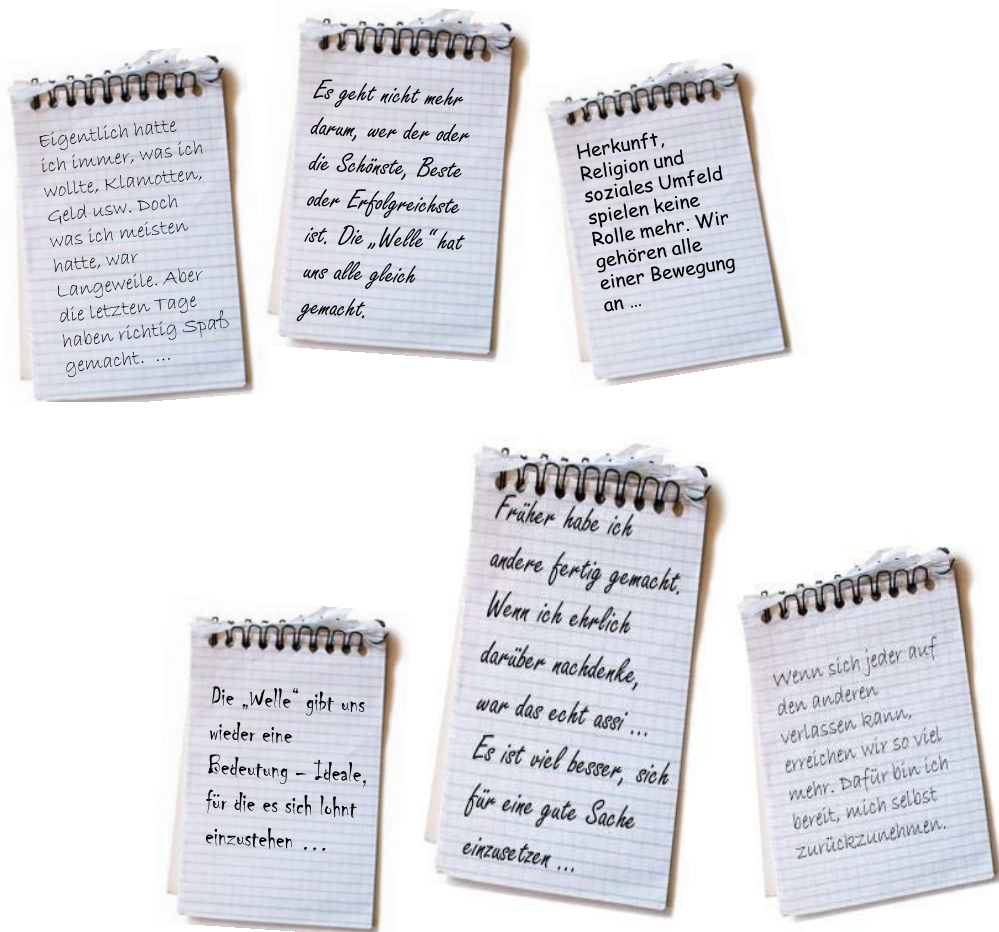 Eigentlich hatte
ich immer, was ich
wollte, Klamotten,
Geld usw. Doch
was ich meisten
hatte, war
Langeweile. Aber
die letzten Tage
haben richtig Spaß
gemacht. ...
Es geht nicht mehr
darum, wer der oder
die Schönste, Beste
oder Erfolgreichste
ist. Die „Welle“ hat
uns alle gleich
gemacht.
Herkunft,
Religion und
soziales Umfeld
spielen keine
Rolle mehr. Wir
gehören alle
einer Bewegung
an ...
Die „Welle“ gibt uns
wieder eine
Bedeutung – Ideale,
für die es sich lohnt
einzustehen ...
Früher habe ich
andere fertig gemacht.
Wenn ich ehrlich
darüber nachdenke,
war das echt assi ...
Es ist viel besser, sich
für eine gute Sache
einzusetzen ...
Wenn sich jeder auf
den anderen
verlassen kann,
erreichen wir so viel
mehr. Dafür bin ich
bereit, mich selbst
zurückzunehmen.